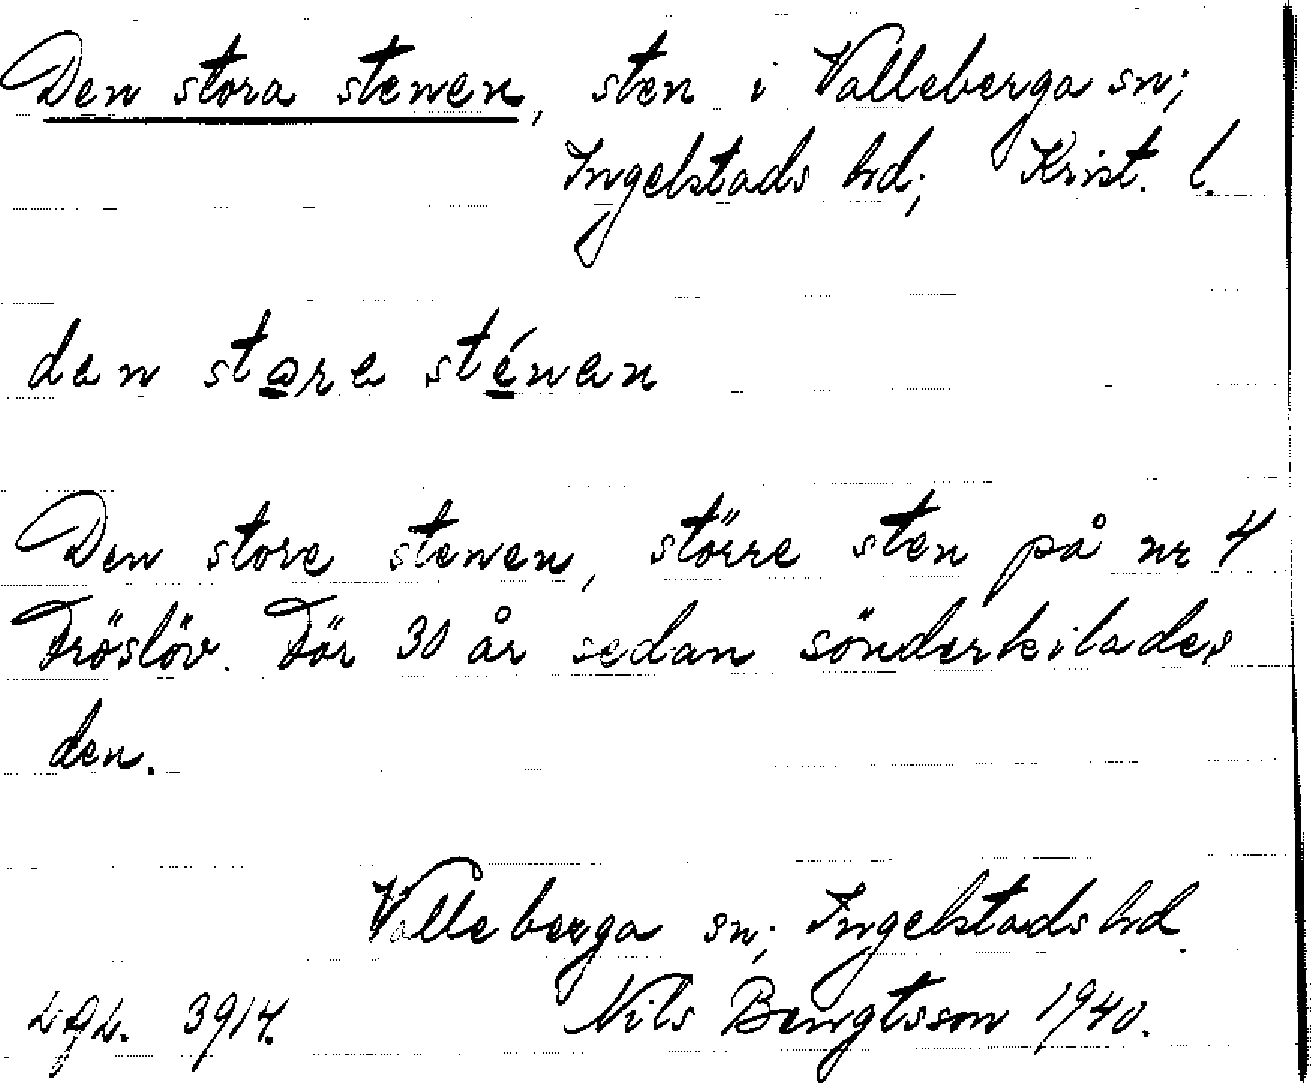 Den stora stenen, sten i Valleberga sn;
Ingelstads hd; Krist. l.
den stora sténan
Den store stenen, större sten på nr 4
Fröslöv. För 30 år sedan sönderkilades
den.
Valleberga sn; Ingelstads hd.
3914. Nils Bengtsson 1940.